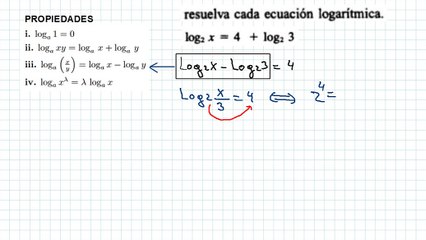 PROPIEDADES
i. logₐ 1 = 0
ii. logₐ xy = logₐ x + logₐ y
iii. logₐ (x/y) = logₐ x − logₐ y
iv. logₐ x^λ = λ logₐ x
resuelva cada ecuación logarítmica.
log₂ x = 4 + log₂ 3
Log₂x − Log₂3 = 4
Log₂ x/3 = 4 ⟺ 2⁴ =